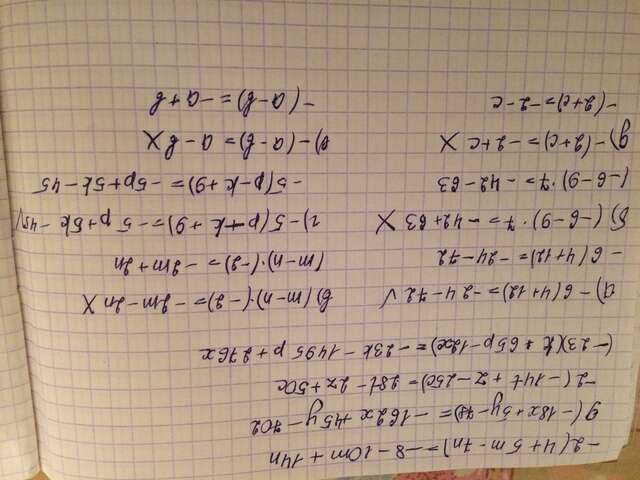 -2(4+5m-7n)=-8-10m+14n
9(-18x+5y-78)=-162x+45y-702
-2(-14t+z-250)=28t-2z+50x
(-23)(k+65p-12x)=-23k-1495p+276x
а) -6(4+12)=-24-72 √
-6(4+12)=-24-72
б) (-6-9)·7=-42+63 X
(-6-9)·7=-42-63
д) -(2+c)=-2+c X
-(2+c)=-2-c
в) (m-n)·(-2)=-2m-2n X
(m-n)·(-2)=-2m+2n
г) -5(p+k+9)=-5p+5k-45
-5(p-k+9)=-5p+5k-45
е) -(a-b)=a-b X
-(a-b)=-a+b